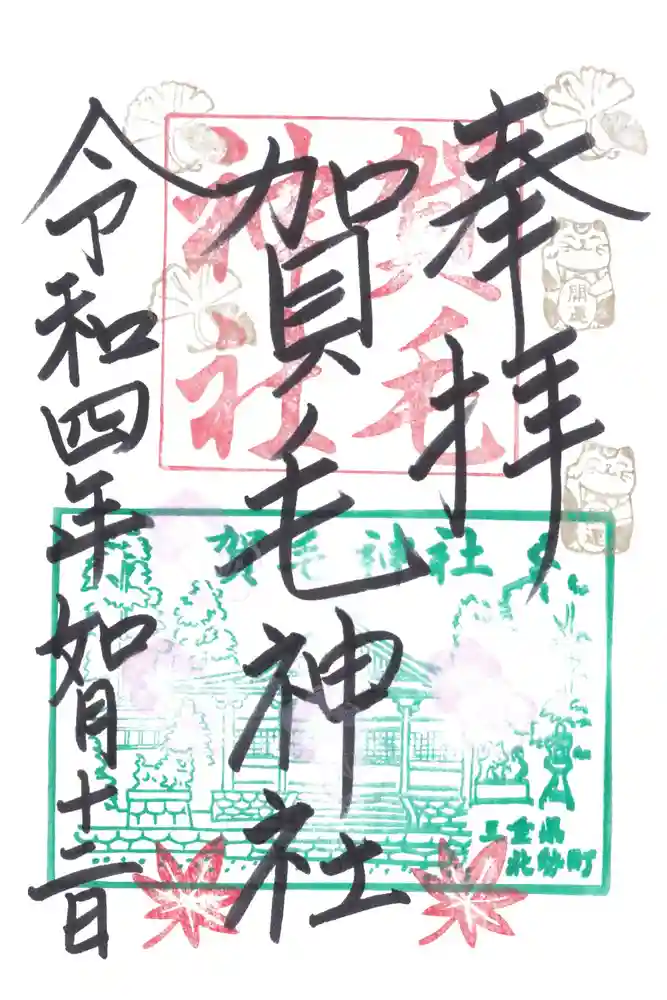 奉拝
賀毛神社
令和四年如月十二日
賀毛
神社
開運
開運
賀毛神社
三重県
北勢町